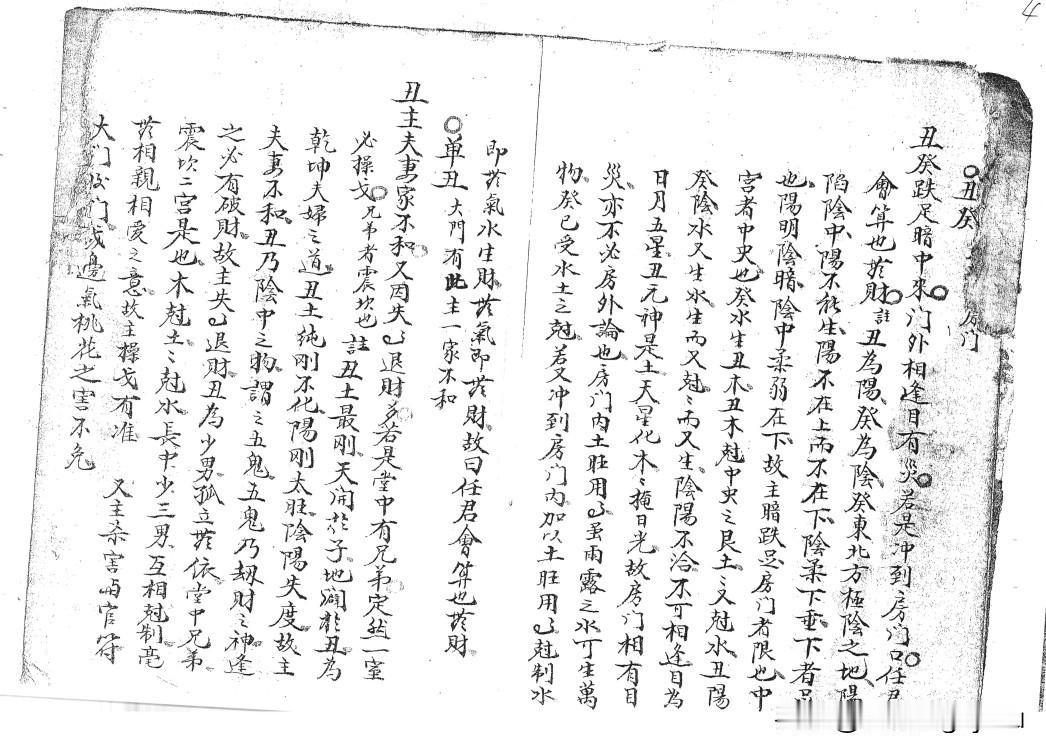 4
丑癸 房门
丑癸跌足暗中來門外相逢目有災若是冲到房门口任君
會算也訞財 註 丑為陽癸為陰癸東北方極陰之地陽
陷陰中陽不能生陽不在上而不在下陰柔下垂下者足
也陽明陰暗陰中柔弱在下故主暗跌足房门者限也中
宮者中央也癸水生丑木丑木尅中央之艮土土又尅水丑陽
癸陰水又生水生而又尅尅而又生陰陽不洽不可相逢目為
日月五星丑元神是土天星化木木掩日光故房门相有目
災亦不必房外論也房门内土旺用事虽雨露之水可生萬
物癸已受水土之尅若又冲到房门内加以土旺用事尅制水
即訞氣水生財訞氣即訞財故曰任君會算也訞財
单丑 大門有此主一家不和
丑主夫妻家不和又因失事退財多若是堂中有兄弟定然一室
必操戈兄弟者震坎也 註 丑土最刚天開於子地闢於丑為
乾坤夫婦之道丑土純刚不化陽刚太旺陰陽失度故主
夫妻不和丑乃陰中之物謂之五鬼五鬼乃刼財之神逢
之必有破財故主失事退財丑為少男孤立無依堂中兄弟
震坎二宮是也木尅土土尅水長中少三男互相尅制毫
無相親相愛之意故主操戈有准 又主杀害与官符
大门 门或邊氣桃花之害不免